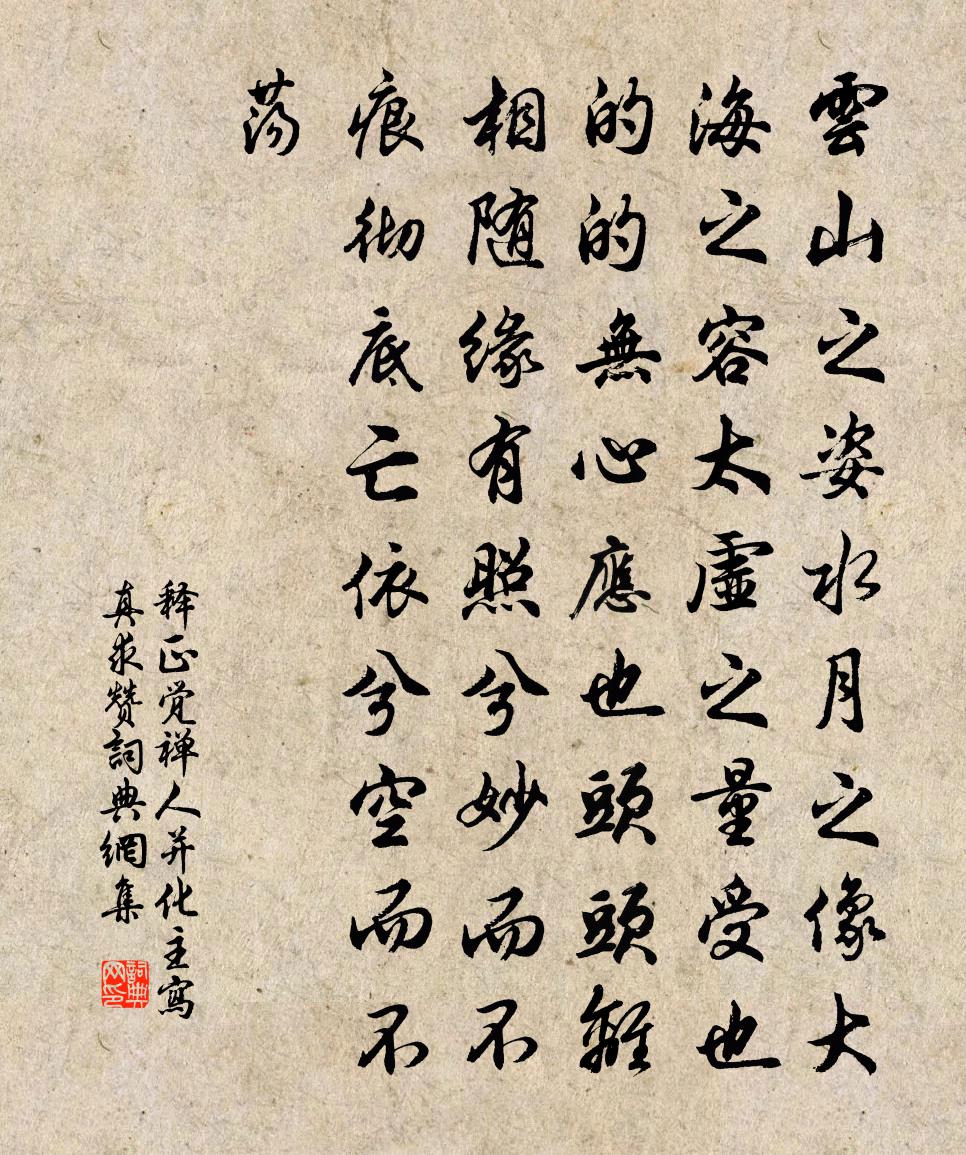 雲山之姿水月之像大
海之容太虛之量受也
的的無心應也頭頭離
相随緣有照兮妙而不
痕彻底亡依兮空而不
荡
释正觉禅人并化主寫
真求赞詞典網集
詞典网印